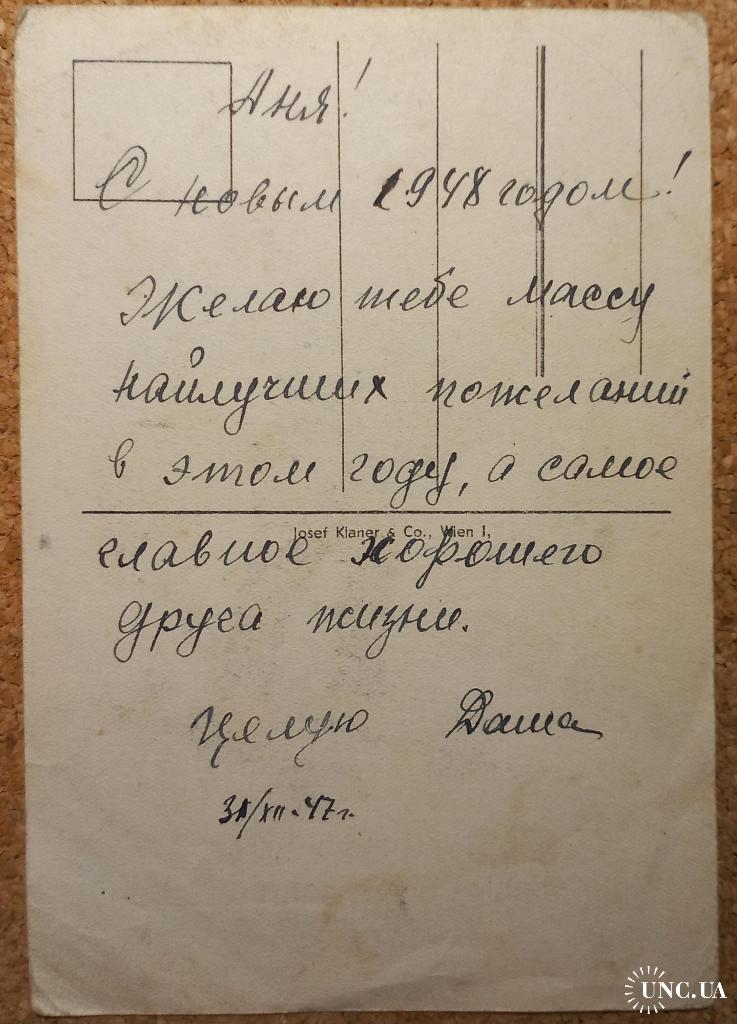 Аня!
С новым 1948 годом!
Желаю тебе массу
наилучших пожеланий
в этом году, а самое
Josef Klaner & Co., Wien I,
главное хорошего
друга жизни.
Целую Даша
31/XII-47г.
UNC.UA